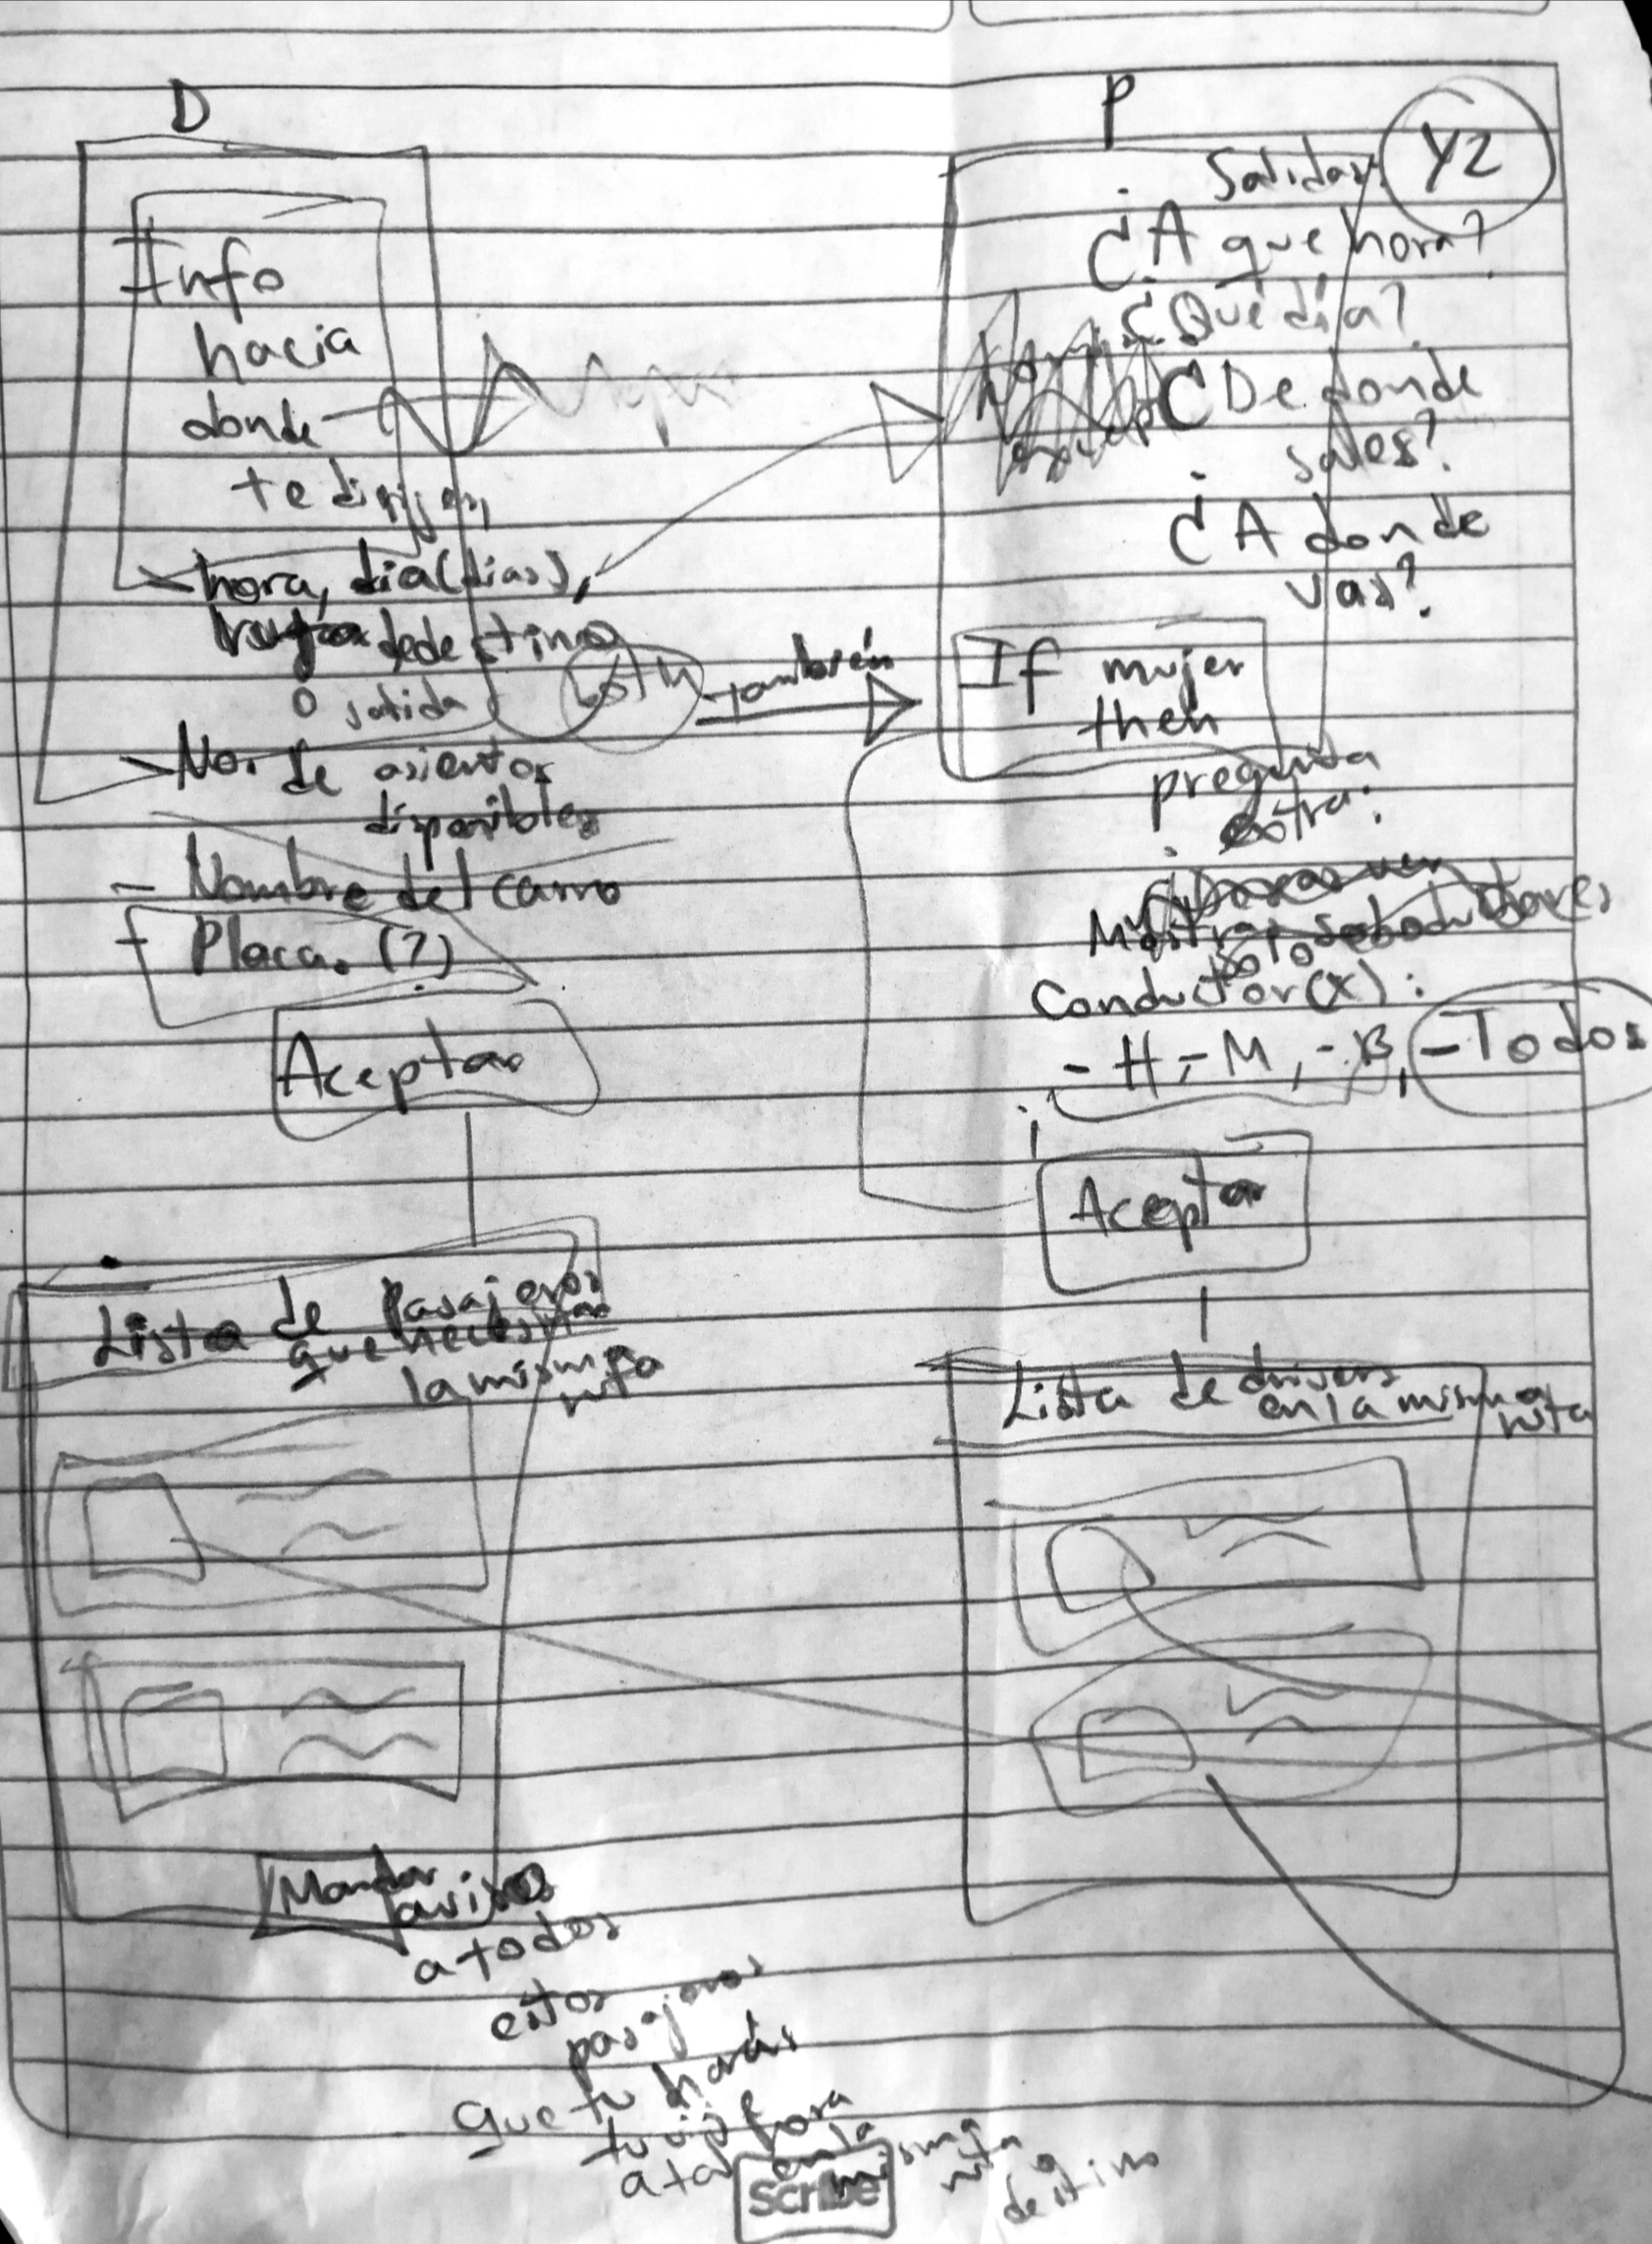 D
Info
hacia
donde
te diriges,
- hora, dia (dias),
de destino
o salida
- No. de asientos
disponibles
- Nombre del carro
- Placa. (?)
Aceptar
Lista de Pasajeros
que necesitan
la misma
ruta
Mandar
aviso
a todos
estos
pasajeros
que tu harás
tu viaje
a tal hora
en la
misma
ruta o
destino
también
P
Salidas:
YZ
¿A que hora?
¿Qué día?
¿De donde
sales?
¿A donde
vas?
If mujer
then
pregunta
extra:
Mostrar
Conductor(x):
- H, - M, - B, - Todos
Aceptar
Lista de drivers
en la misma
ruta
Scribe